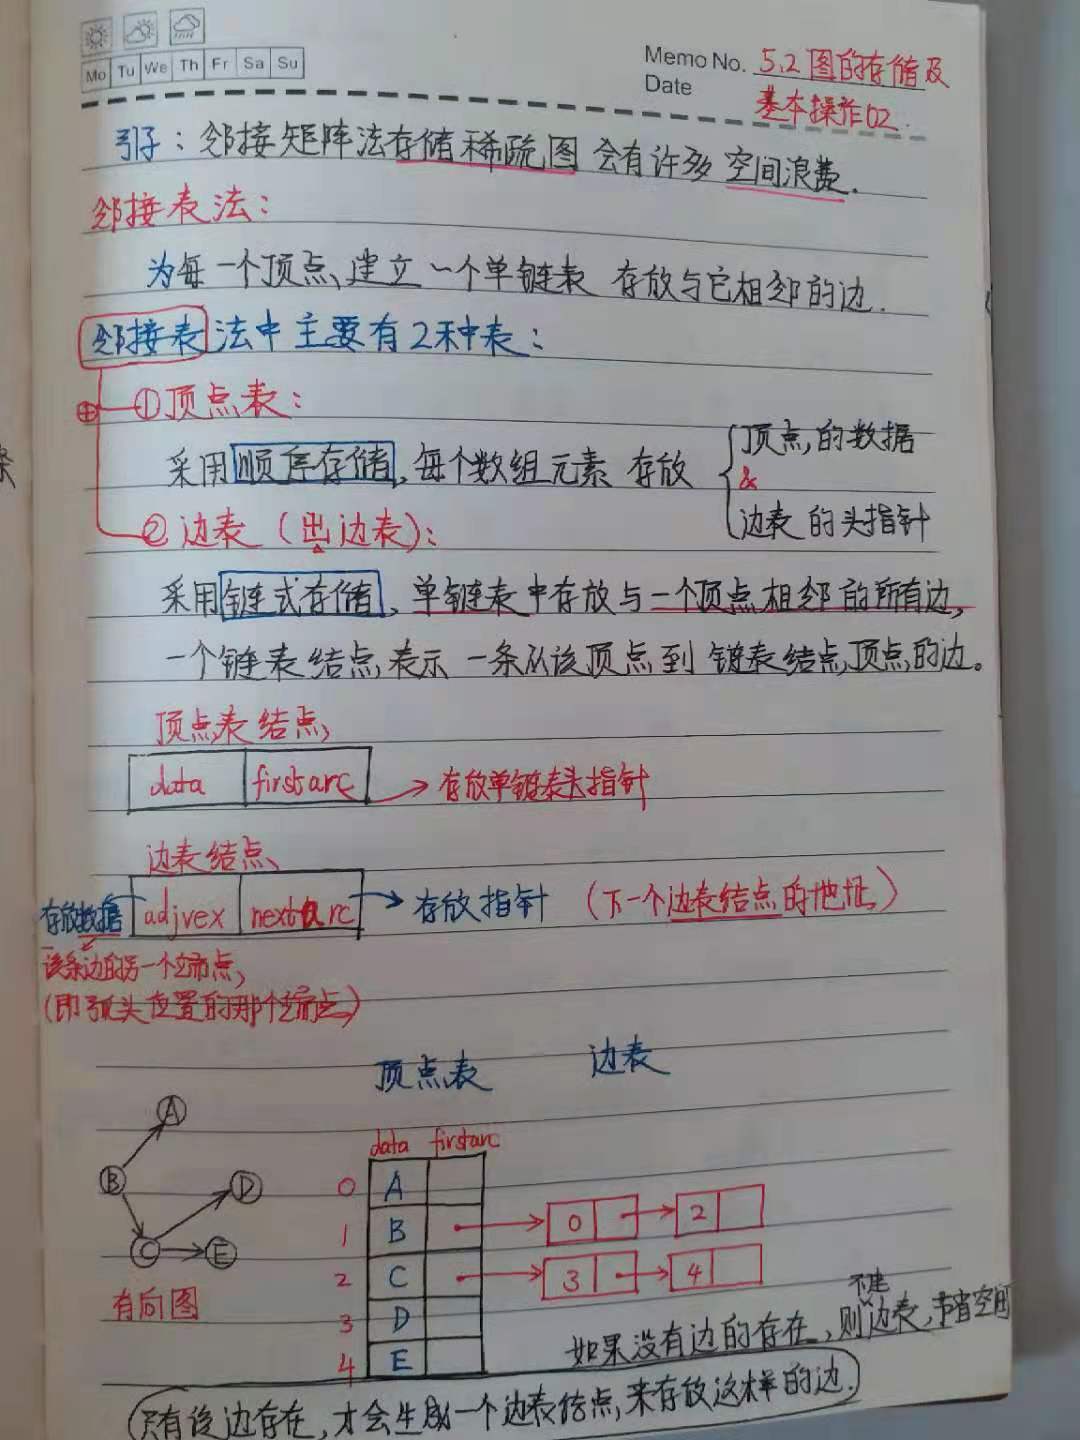 Mo Tu We Th Fr Sa Su
Memo No. 5.2图的存储及
Date 基本操作02.
引子：邻接矩阵法存储稀疏图会有许多空间浪费.
邻接表法：
为每一个顶点建立一个单链表 存放与它相邻的边.
邻接表法中主要有2种表：
①顶点表：
采用顺序存储，每个数组元素 存放
顶点的数据
&
边表的头指针
②边表（出边表）：
采用链式存储，单链表中存放与一个顶点相邻的所有边，
一个链表结点表示 一条从该顶点到 链表结点顶点的边。
顶点表结点
data firstarc → 存放单链表头指针
边表结点
存放数据 adjvex nextarc → 存放指针 （下一个边表结点的地址）
该条边的另一个端点
（即弧头位置的那个端点）
顶点表 边表
data firstarc
A
B
C
D
E
有向图
0 A
1 B 0 2
2 C 3 4
3 D
4 E
不建
如果没有边的存在，则边表，节省空间
只有该边存在，才会生成一个边表结点，来存放这样的边.